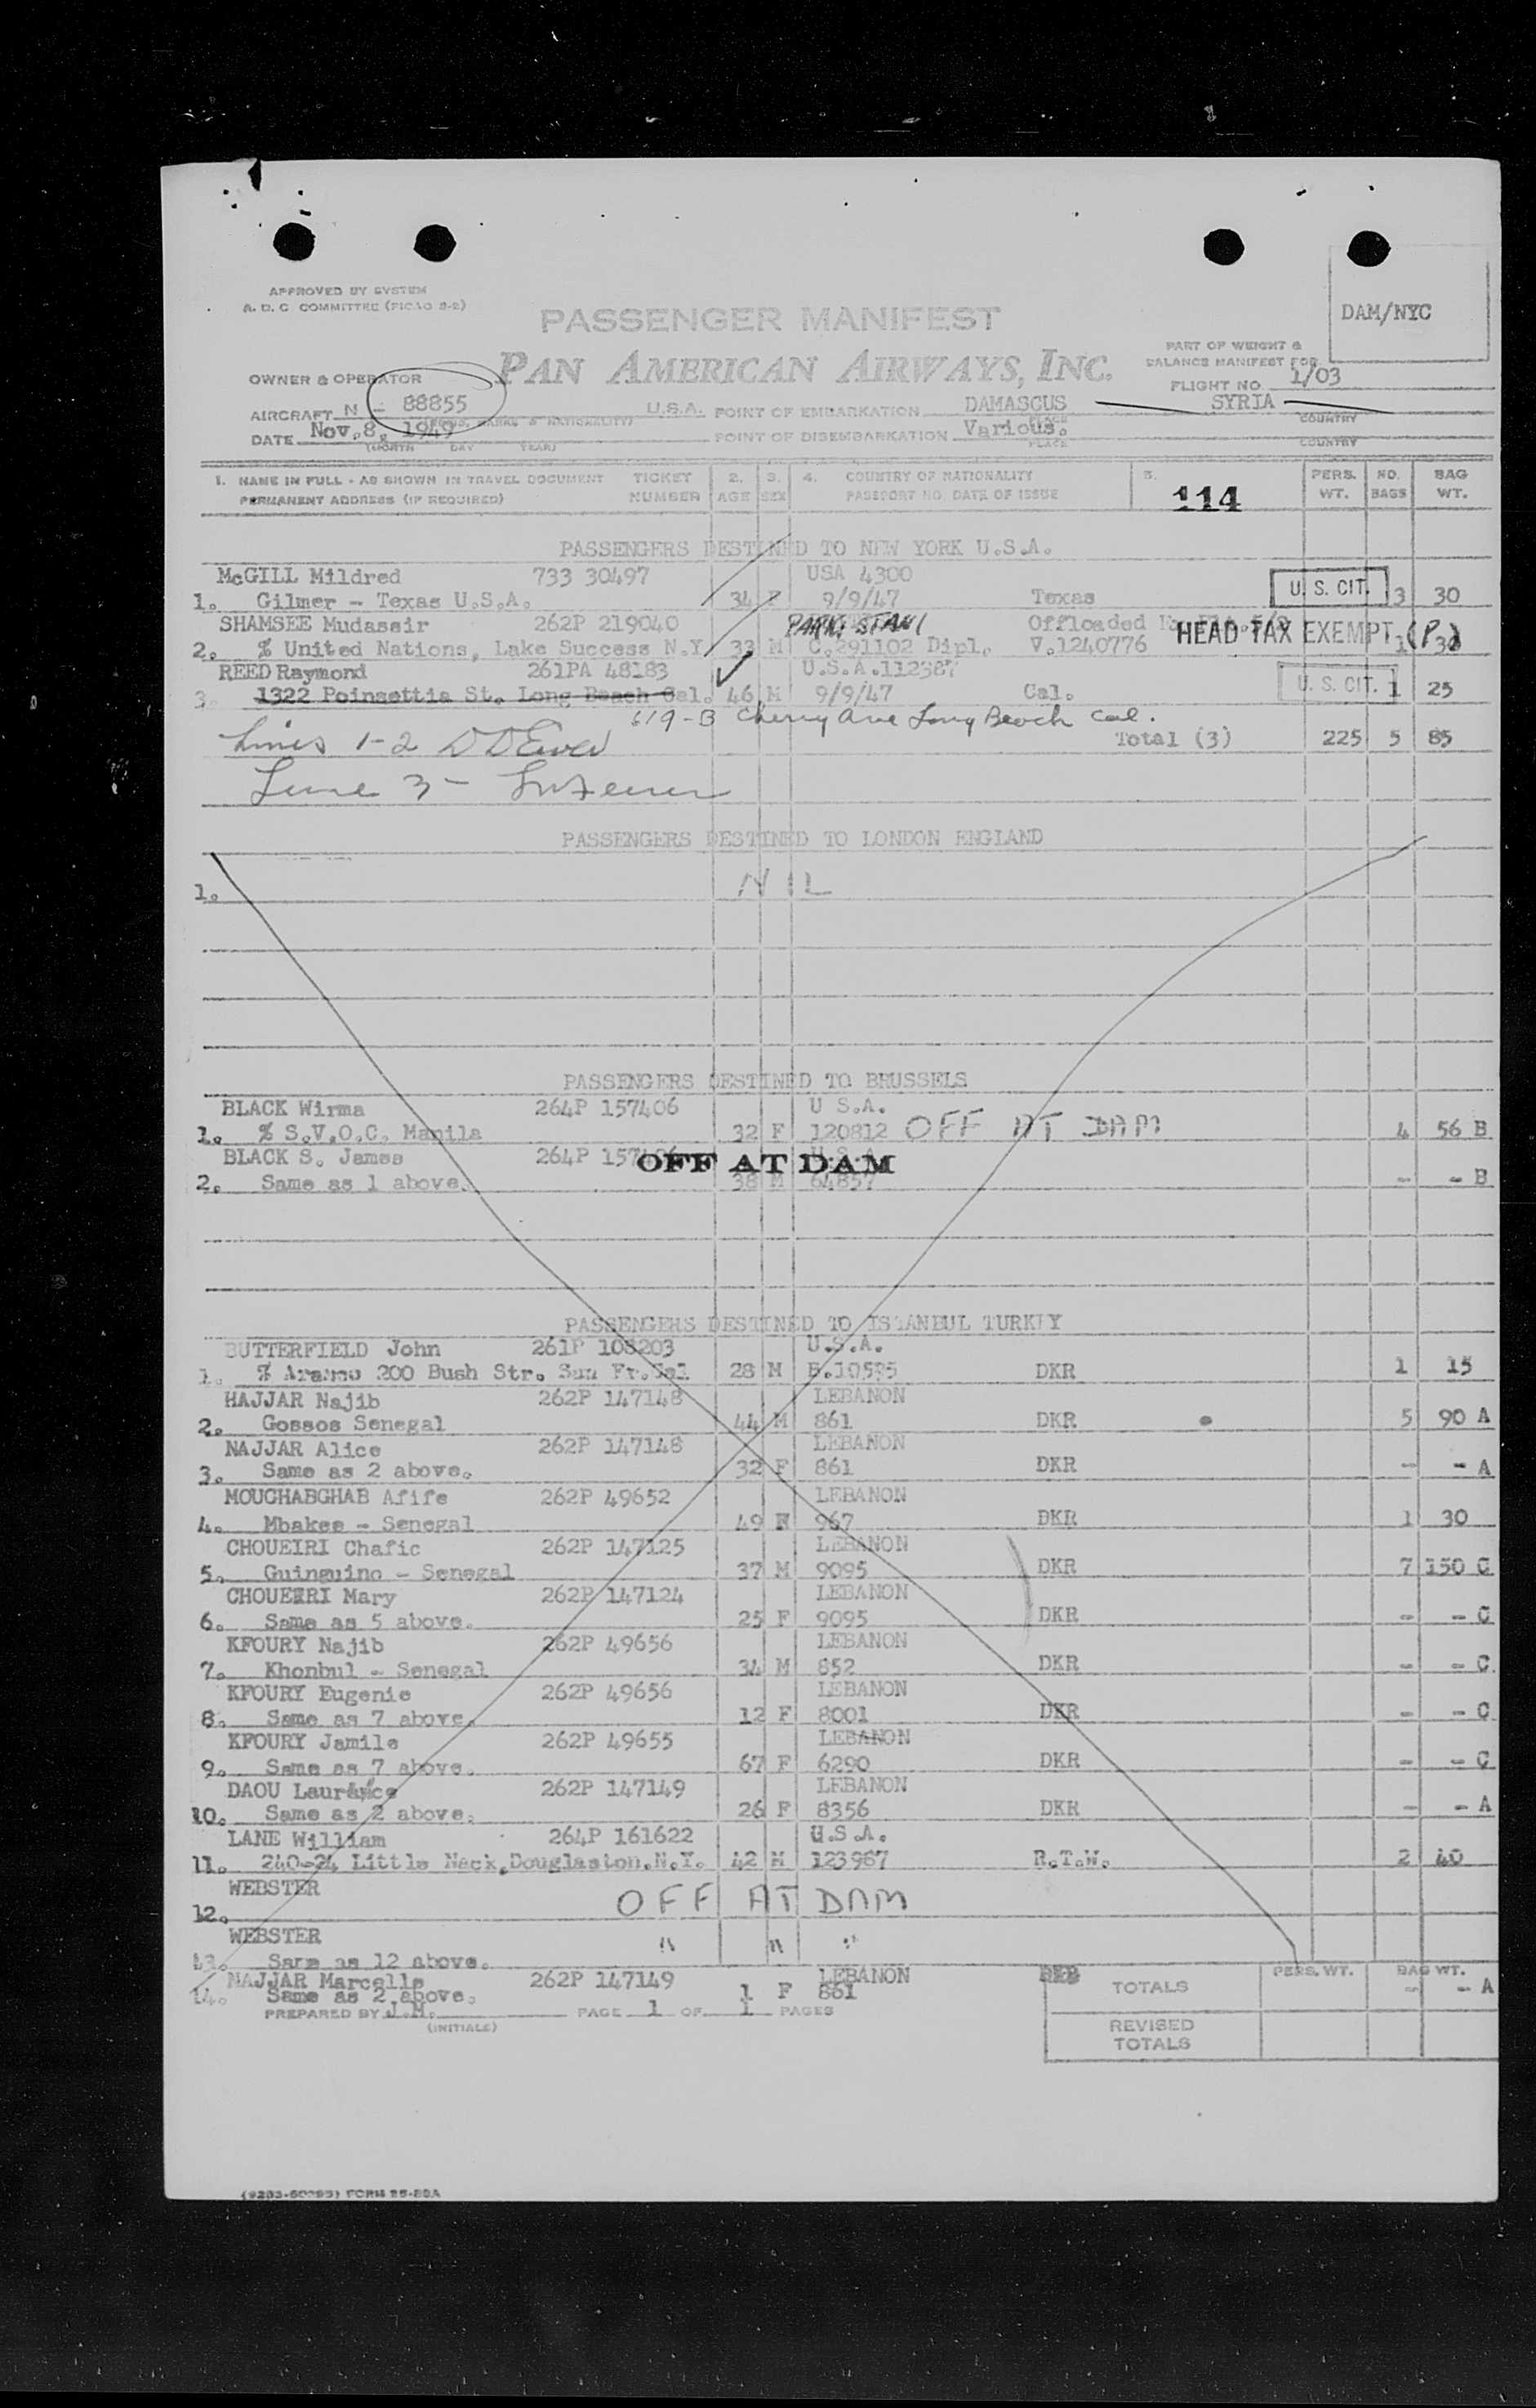 APPROVED BY SYSTEM
A. D. C COMMITTEE (PICAO 9-2)
PASSENGER MANIFEST
DAM/NYC
PAN AMERICAN AIRWAYS, INC.
PART OF WEIGHT &
BALANCE MANIFEST FOR
OWNER & OPERATOR
FLIGHT NO. 1/03
AIRCRAFT N - 88855 U.S.A. POINT OF EMBARKATION DAMASCUS SYRIA
PLACE COUNTRY
DATE Nov.8, 1949 POINT OF DISEMBARKATION Various.
(MONTH DAY YEAR) PLACE COUNTRY
1. NAME IN FULL - AS SHOWN IN TRAVEL DOCUMENT TICKET 2. 3. 4. COUNTRY OF NATIONALITY 5. PERS. NO. BAG
PERMANENT ADDRESS (IF REQUIRED) NUMBER AGE SEX PASSPORT NO. DATE OF ISSUE 114 WT. BAGS WT.
PASSENGERS DESTINED TO NEW YORK U.S.A.
McGILL Mildred 733 30497 USA 4300
1. Gilmer - Texas U.S.A. 34 F 9/9/47 Texas U. S. CIT. 3 30
SHAMSEE Mudassir 262P 219040 PAKISTANI Offloaded
2. % United Nations, Lake Success N.Y 33 M C.291102 Dipl. V.1240776 HEAD TAX EXEMPT (P) 1 30
REED Raymond 261PA 48183 U.S.A.112387
3. 1322 Poinsettia St. Long Beach Cal. 46 M 9/9/47 Cal. U. S. CIT. 1 25
619-B Cherry Ave Long Beach Cal.
Lines 1-2
Total (3) 225 5 85
Line 3 -
PASSENGERS DESTINED TO LONDON ENGLAND
1. NIL
PASSENGERS DESTINED TO BRUSSELS
BLACK Wirma 264P 157406 U S.A.
1. % S.V.O.C. Manila 32 F 120812 OFF AT DAM 4 56 B
BLACK S. James 264P OFF AT DAM
2. Same as 1 above. 38 M 64857 - - B
PASSENGERS DESTINED TO ISTANBUL TURKEY
BUTTERFIELD John 261P 108203 U.S.A.
1. % Aramco 200 Bush Str. San Fr.Cal 28 M DKR 1 15
HAJJAR Najib 262P 147148 LEBANON
2. Gossos Senegal 44 M 861 DKR 5 90 A
NAJJAR Alice 262P 147148 LEBANON
3. Same as 2 above. 32 F 861 DKR - - A
MOUGHABGHAB Afife 262P 49652 LEBANON
4. Mbakee - Senegal 49 F 967 DKR 1 30
CHOUEIRI Chafic 262P 147125 LEBANON
5. Guinguino - Senegal 37 M 9095 DKR 7 150 C
CHOUEIRI Mary 262P 147124 LEBANON
6. Same as 5 above. 25 F 9095 DKR - - C
KFOURY Najib 262P 49656 LEBANON
7. Khonbul - Senegal 34 M 852 DKR - - C
KFOURY Eugenie 262P 49656 LEBANON
8. Same as 7 above. 12 F 8001 DKR - - C
KFOURY Jamile 262P 49655 LEBANON
9. Same as 7 above. 67 F 6290 DKR - - C
DAOU Laurance 262P 147149 LEBANON
10. Same as 2 above. 26 F 8356 DKR - - A
LANE William 264P 161622 U.S.A.
11. 240-24 Little Neck,Douglaston.N.Y. 42 M 123967 R.T.W. 2 40
WEBSTER
12. OFF AT DAM
WEBSTER
13. Same as 12 above. " " "
NAJJAR Marcelle 262P 147149 LEBANON TOTALS PERS. WT. BAG WT.
14. Same as 2 above. 1 F 861 - - A
PREPARED BY J.H. PAGE 1 OF 1 PAGES
(INITIALS)
REVISED
TOTALS
FORM 25-80A